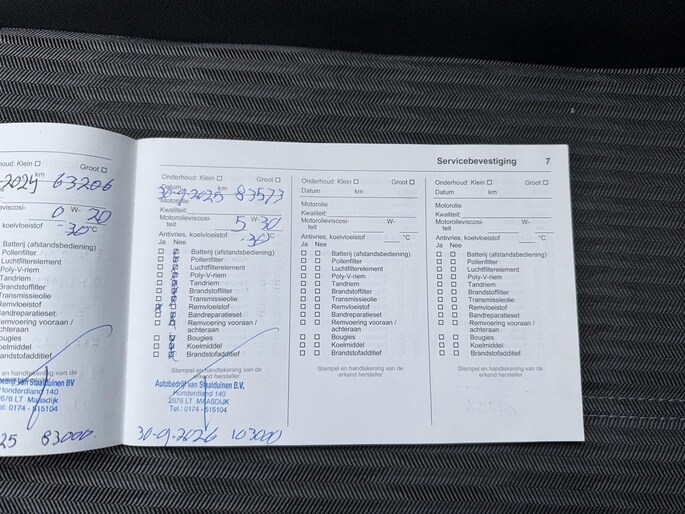 Servicebevestiging 7
houd: Klein ☐ Groot ☐
km
2024 63206
eviscosi- 0 W- 20
koelvloeistof -30 °C
Batterij (afstandsbediening)
Pollenfilter
Luchtfilterelement
Poly-V-riem
Tandriem
Brandstoffilter
Transmissieolie
Remvloeistof
Bandreparatieset
Remvoering vooraan /
achteraan
Bougies
Koelmiddel
Brandstofadditief
Stempel en handtekening van de
erkend hersteller
van Staalduinen BV
Honderdland 140
2676 LT Maasdijk
Tel.: 0174 - 515104
25 83000
Onderhoud: Klein ☐ Groot ☐
Datum km
30-9-2025 83573
Motorolie
Kwaliteit:
Motorolieviscosi- 5 W- 30
teit
Antivries, koelvloeistof -30 °C
Ja Nee
Batterij (afstandsbediening)
Pollenfilter
Luchtfilterelement
Poly-V-riem
Tandriem
Brandstoffilter
Transmissieolie
Remvloeistof
Bandreparatieset
Remvoering vooraan /
achteraan
Bougies
Koelmiddel
Brandstofadditief
Stempel en handtekening van de
erkend hersteller
Autobedrijf van Staalduinen B.V.
Honderdland 140
2676 LT MAASDIJK
Tel.: 0174 - 515104
30-9-2026 103000
Onderhoud: Klein ☐ Groot ☐
Datum km
Motorolie
Kwaliteit:
Motorolieviscosi- W-
teit
Antivries, koelvloeistof °C
Ja Nee
☐ ☐ Batterij (afstandsbediening)
☐ ☐ Pollenfilter
☐ ☐ Luchtfilterelement
☐ ☐ Poly-V-riem
☐ ☐ Tandriem
☐ ☐ Brandstoffilter
☐ ☐ Transmissieolie
☐ ☐ Remvloeistof
☐ ☐ Bandreparatieset
☐ ☐ Remvoering vooraan /
achteraan
☐ ☐ Bougies
☐ ☐ Koelmiddel
☐ ☐ Brandstofadditief
Stempel en handtekening van de
erkend hersteller
Onderhoud: Klein ☐ Groot ☐
Datum km
Motorolie
Kwaliteit:
Motorolieviscosi- W-
teit
Antivries, koelvloeistof °C
Ja Nee
☐ ☐ Batterij (afstandsbediening)
☐ ☐ Pollenfilter
☐ ☐ Luchtfilterelement
☐ ☐ Poly-V-riem
☐ ☐ Tandriem
☐ ☐ Brandstoffilter
☐ ☐ Transmissieolie
☐ ☐ Remvloeistof
☐ ☐ Bandreparatieset
☐ ☐ Remvoering vooraan /
achteraan
☐ ☐ Bougies
☐ ☐ Koelmiddel
☐ ☐ Brandstofadditief
Stempel en handtekening van de
erkend hersteller